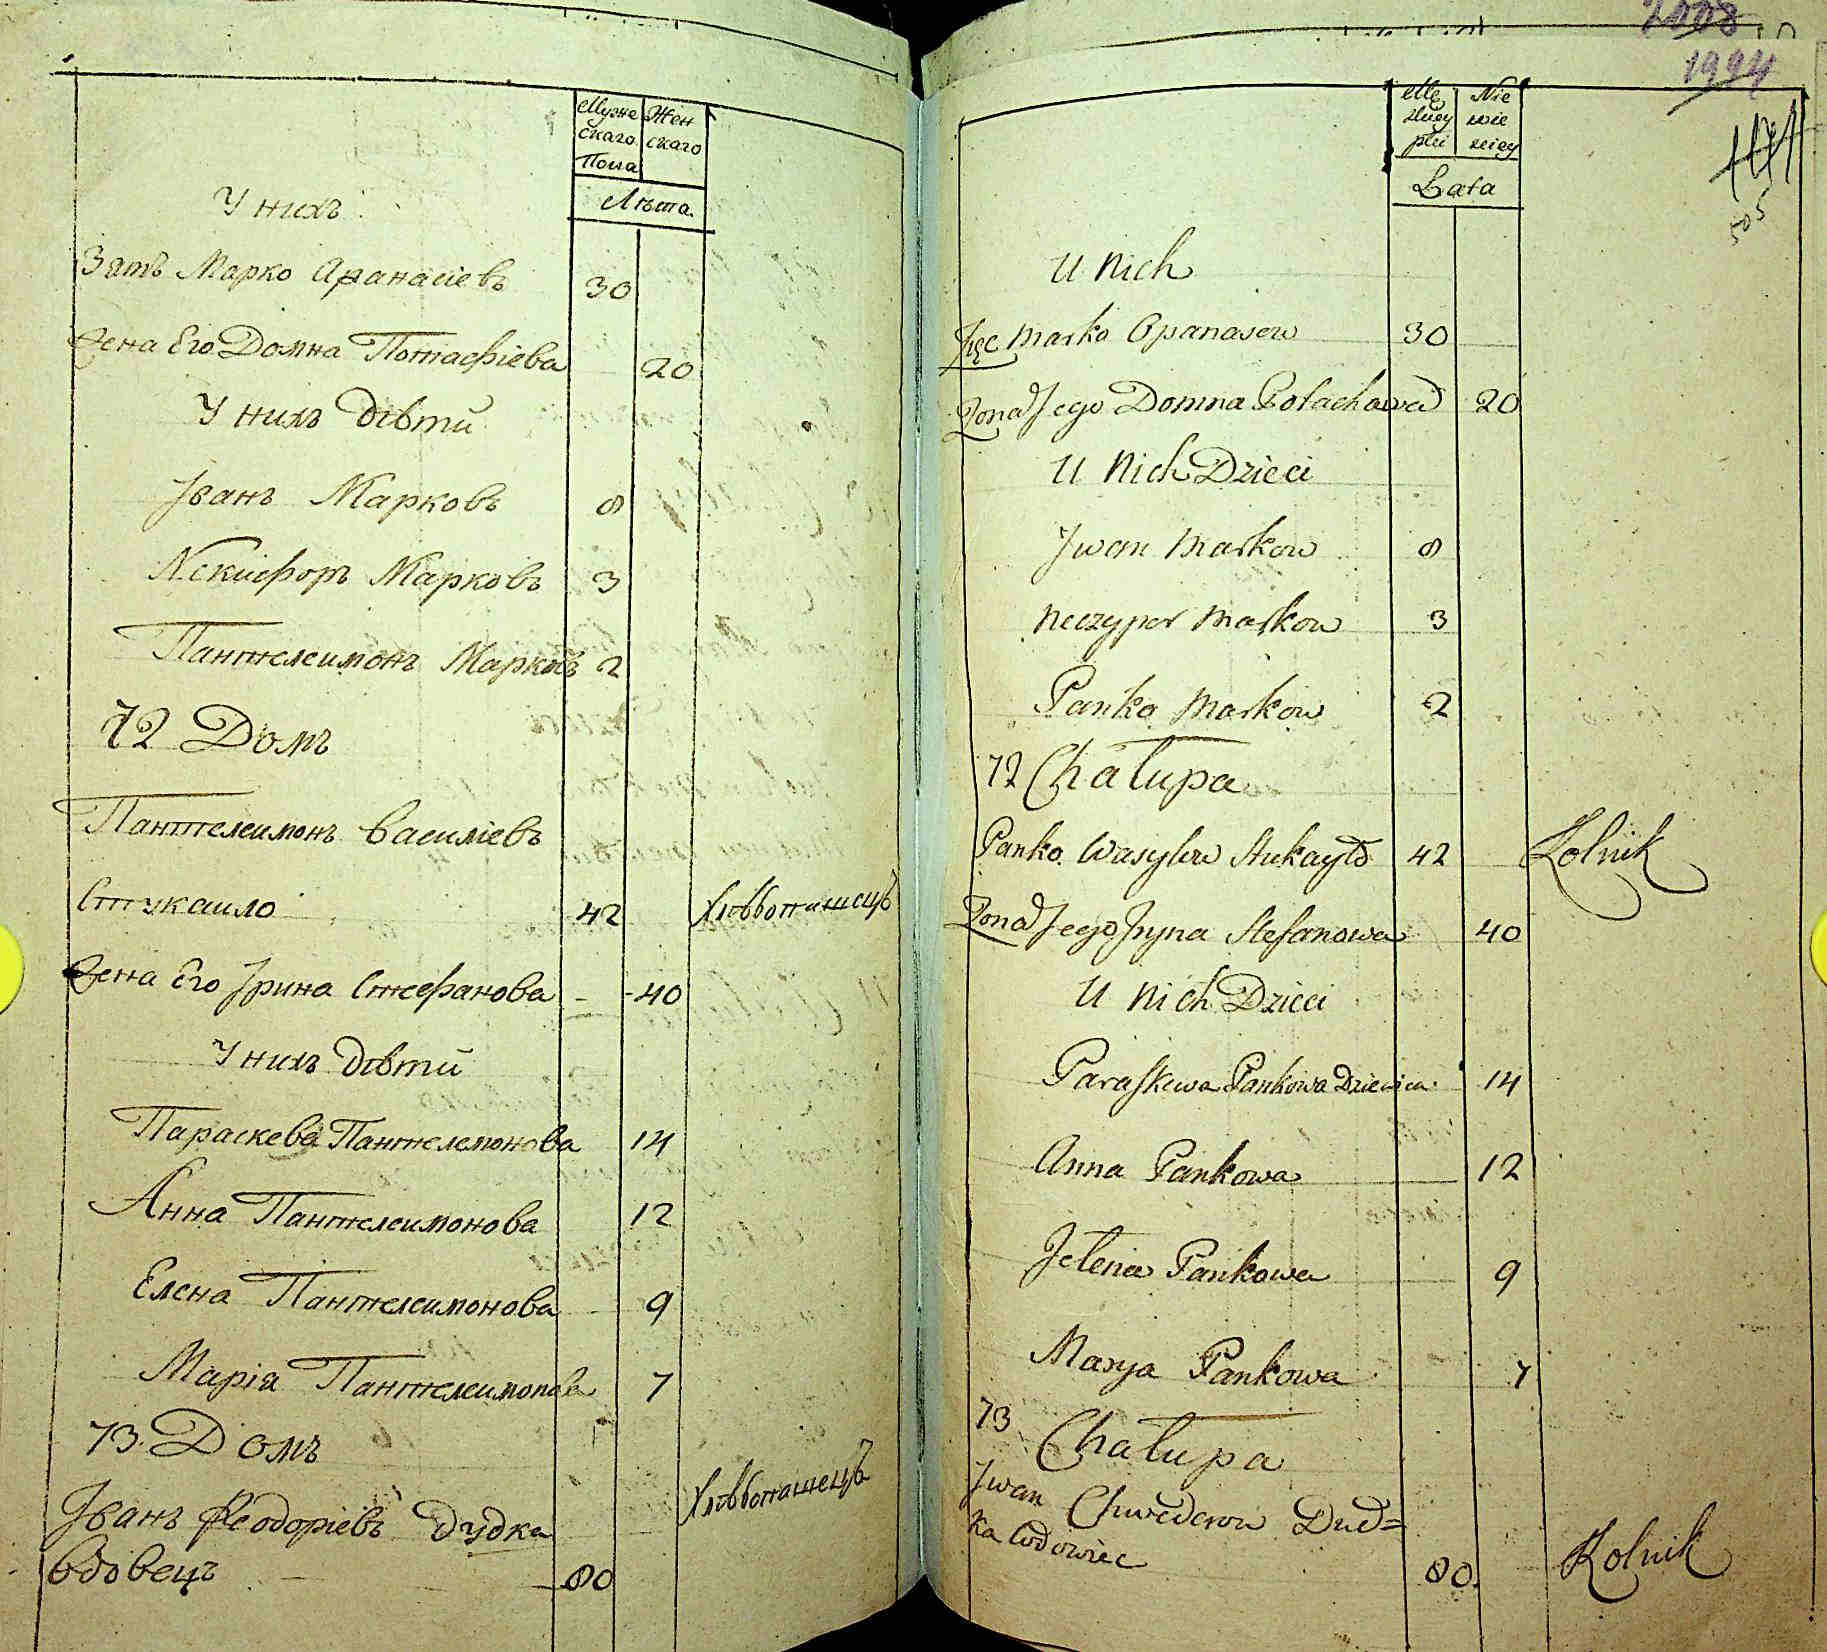 Муже Жен
скаго скаго
Пола
Лѣта.
У нихъ
Зять Марко Афанасіевъ 30
Жена Его Домна Потафіева 20
У нихъ дѣти
Іванъ Марковъ 8
Некифоръ Марковъ 3
Пантелеимонъ Марковъ 2
72 Домъ
Пантелеимонъ Василіевъ
Стукаило 42 Хлѣбопашецъ
Жена Его Ірина Стефанова 40
У нихъ дѣти
Параскева Пантелемонова 14
Анна Пантелеимонова 12
Елена Пантелеимонова 9
Маріа Пантелеимонова 7
73. Домъ
Іванъ Феодоріевъ Дудка Хлѣбопашецъ
вдовецъ 80
2008
1994
505
Lata
U Nich
Zięć Marko Opanasew 30
Żona Jego Domna Potachowa 20
U Nich Dzieci
Jwan Markow 8
Neczypor Markow 3
Panko Markow 2
72 Chałupa
Panko Wasylew Stukayło 42 Rolnik
Żona Jego Jryna Stefanowa 40
U Nich Dzieci
Paraskewa Pankowa Dziewica 14
Anna Pankowa 12
Jelena Pankowa 9
Marya Pankowa 7
73 Chałupa
Jwan Chwedorow Dud=
ka Wdowiec 80. Rolnik